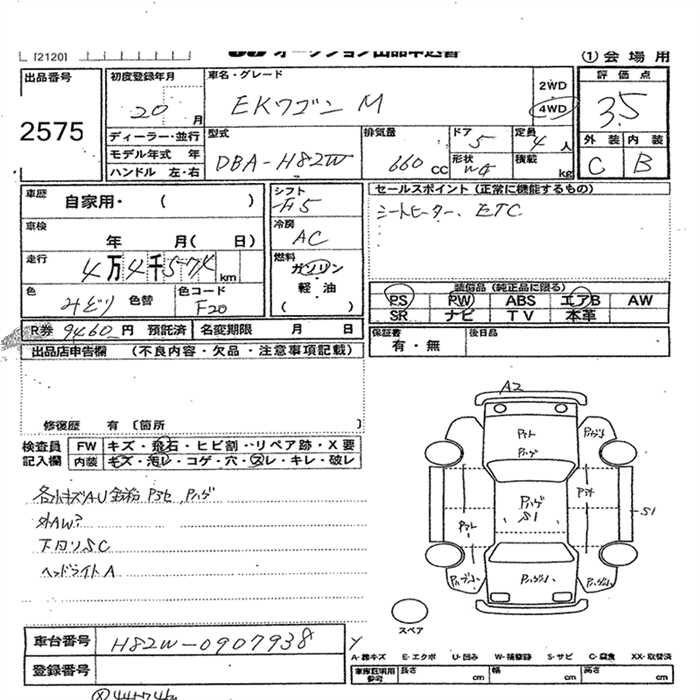 [2120]
オークション出品申込書
① 会場用
出品番号
2575
初度登録年月
20 月
車名・グレード
EKワゴン M
2WD
4WD
評価点
3.5
外装 内装
C B
ディーラー・並行
モデル年式 年
ハンドル 左・右
型式
DBA-H82W
排気量
660 cc
ドア
5
形状
定員
4 人
積載
kg
車歴
自家用・( )
車検
年 月( 日)
走行
4万4千57K km
色
みどり 色替
色コード
F20
シフト
F5
冷房
AC
燃料
ガソリン
軽・油
( )
セールスポイント(正常に機能するもの)
シートヒーター、ETC
装備品(純正品に限る)
PS PW ABS エアB AW
SR ナビ TV 本革
R券 9460円 預託済 名変期限 月 日
保証書
有・無
後日品
出品店申告欄 (不良内容・欠品・注意事項記載)
修復歴 有〔箇所 〕
検査員
記入欄
FW キズ・飛石・ヒビ割・リペア跡・X要
内装 キズ・汚レ・コゲ・穴・スレ・キレ・破レ
外AW?
下回りSC
ヘッドライトA
A2
S1
S1
スペア
車台番号
H82W-0907938
登録番号
A-線キズ E-エクボ U-凹み W-補修跡 S-サビ C-腐食 XX-取替済
車庫証明用参考 長さ cm 幅 cm 高さ cm